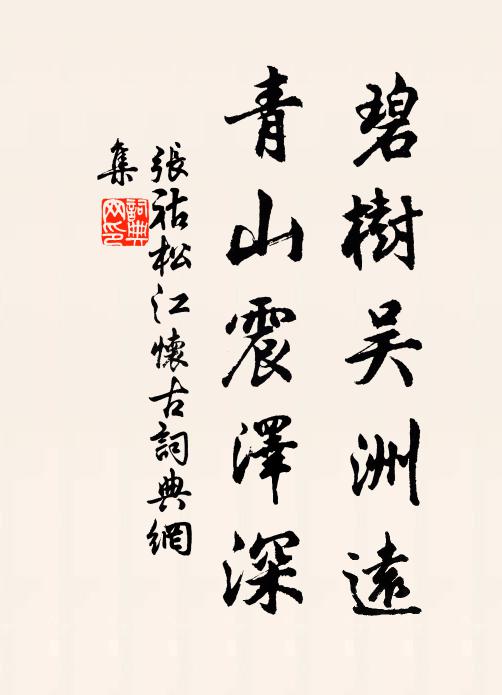 碧樹吴洲遠
青山震澤深
張祜松江懷古詞典網
集
詞典
网印